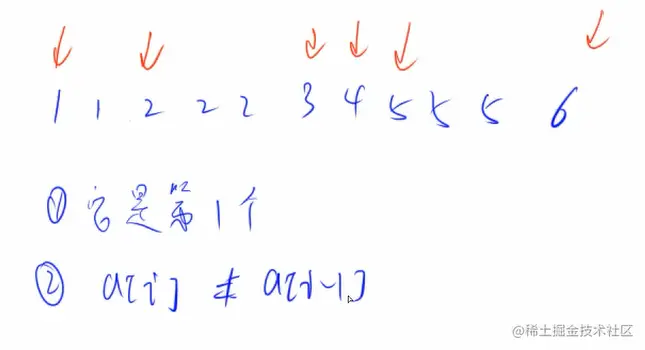 1 1 2 2 2 3 4 5 5 5 6
① 它是第1个
② a[i] ≠ a[i-1]
@稀土掘金技术社区